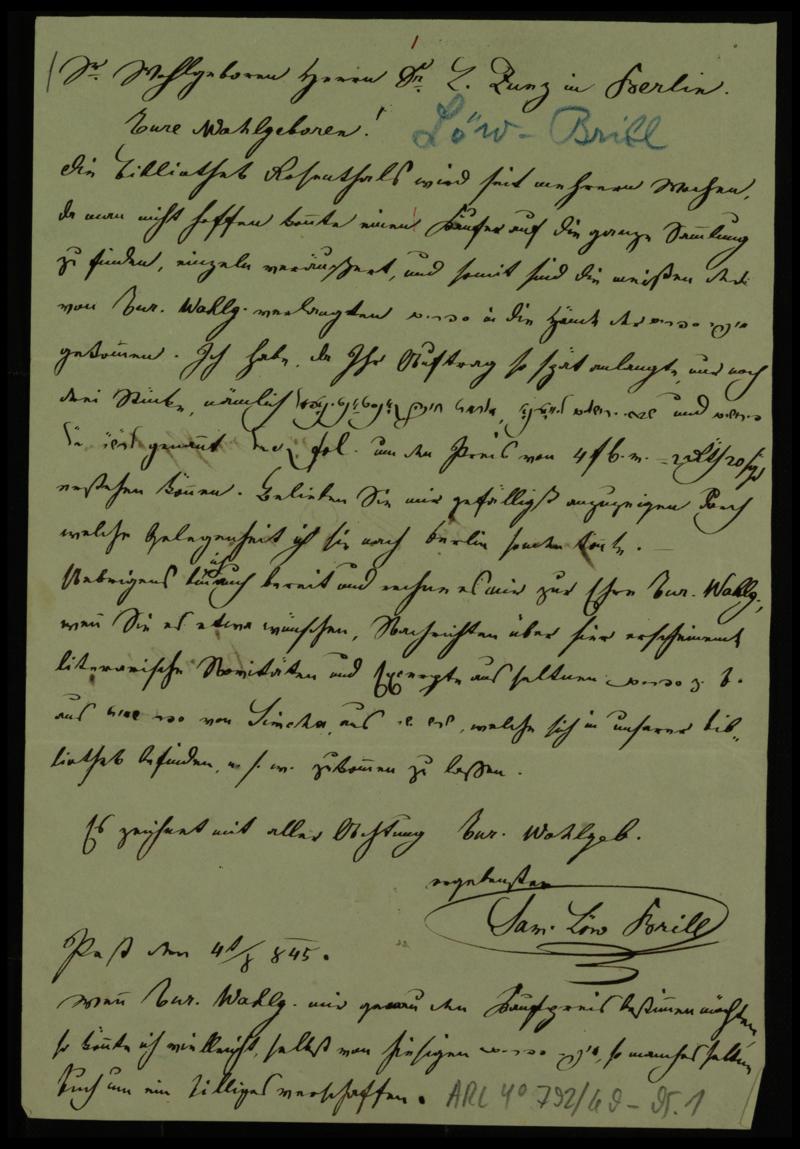 Sr. Wohlgeboren Herrn Dr. L. Zunz in Berlin.
Eure Wohlgeboren!
Löw-Brill
Die Bibliothek Rosenthals wird seit mehrern Wochen,
da man nicht hoffen konnte einen Käufer auf die ganze Sammlung
zu finden, einzeln veräußert, und somit sind die meisten der
von Eur. Wohlg. verlangten ספרים in die Hände der
gekommen. Ich habe, da Ihr Auftrag so spät anlangte nur noch
drei Stücke, nämlich und
genannt fol. um den Preis von 4 f C. M. =
erstehen können. Belieben Sie mir gefälligst anzuzeigen durch
welche Gelegenheit ich sie nach Berlin senden könnte. —
Uebrigens bin ich auch bereit und rechne es mir zur Ehre Eur. Wohlg.,
wenn Sie es etwa wünschen, Nachrichten über hier erscheinende
literarische Novitäten und Excerpte aus seltnen z. B.
aus von Simcha, aus , welche sich in unserer Bib-
liothek befinden, u. s. w. zukommen zu lassen.
Es zeichnet mit aller Achtung Eur. Wohlgeb.
ergebenster
Sam. Löw Brill
Pest den 4t/8 845.
Wenn Eur. Wohlg. mir genau den Kaufpreis bestimmen möchten,
so könnte ich vielleicht, selbst von hiesigen , so manches seltene
Buch um ein Billiges verschaffen.
ARC 4° 792/